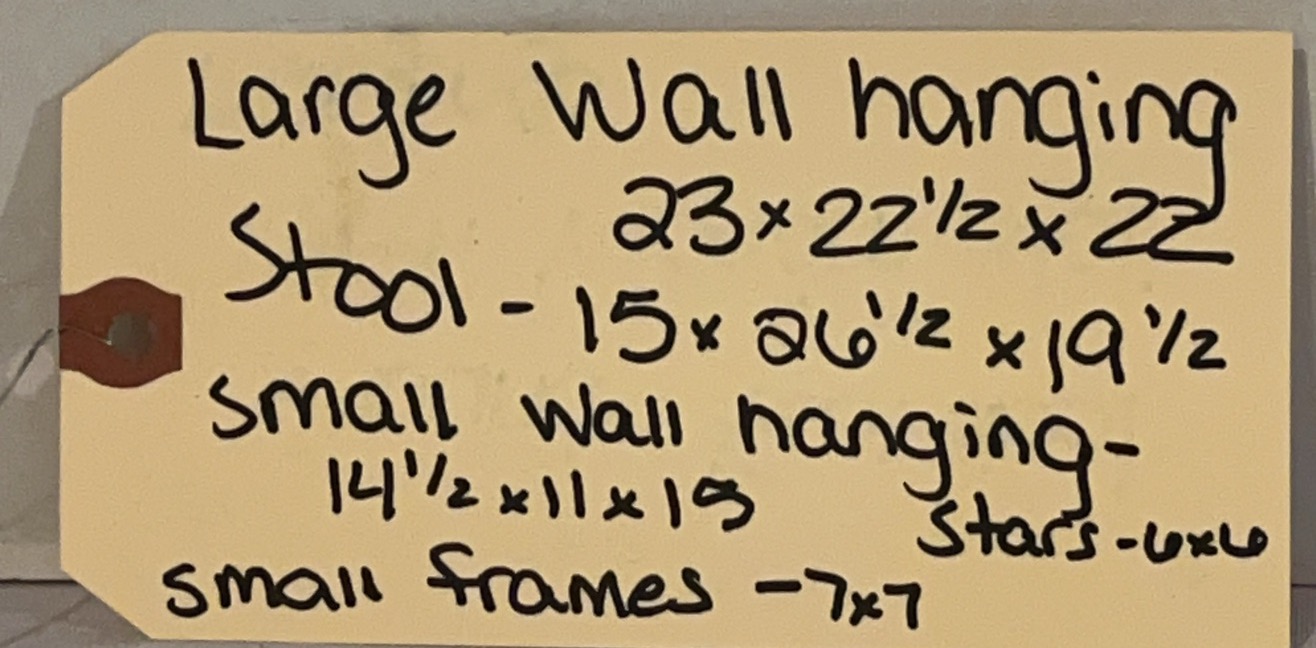 Large Wall hanging
23 x 22 1/2 x 22
Stool - 15 x 26 1/2 x 19 1/2
small wall hanging -
14 1/2 x 11 x 15
Stars - 6x6
small frames - 7x7